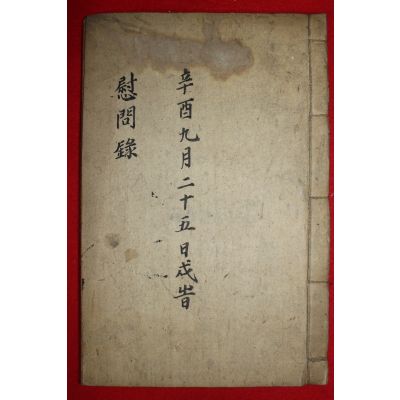 辛酉九月二十五日戌旹
慰問錄